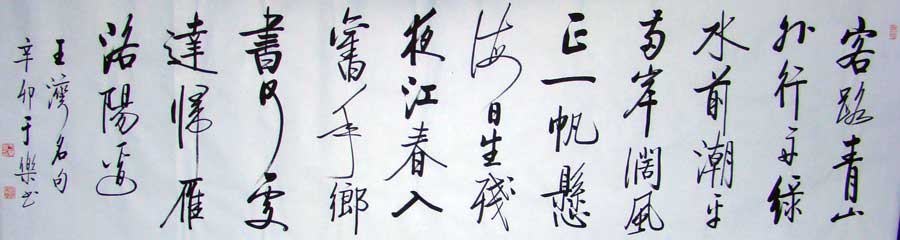 客路青山
外行舟綠
水前潮平
兩岸闊風
正一帆懸
海日生殘
夜江春入
舊年鄉
書何處
達歸雁
洛陽邊
王灣名句
辛卯于樂书